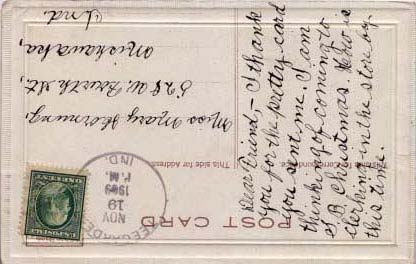 POST CARD
This side for Address
TEEGARDEN
NOV
19
P.M.
1909
IND.
Dear Friend,- I thank
you for the pretty card
you sent me. I am
thinking of coming to
S.B. Christmas. Who is
clerking in the store by
this time.
Miss Mary Hornung,
528 W. Fourth St.,
Mishawaka,
Ind.